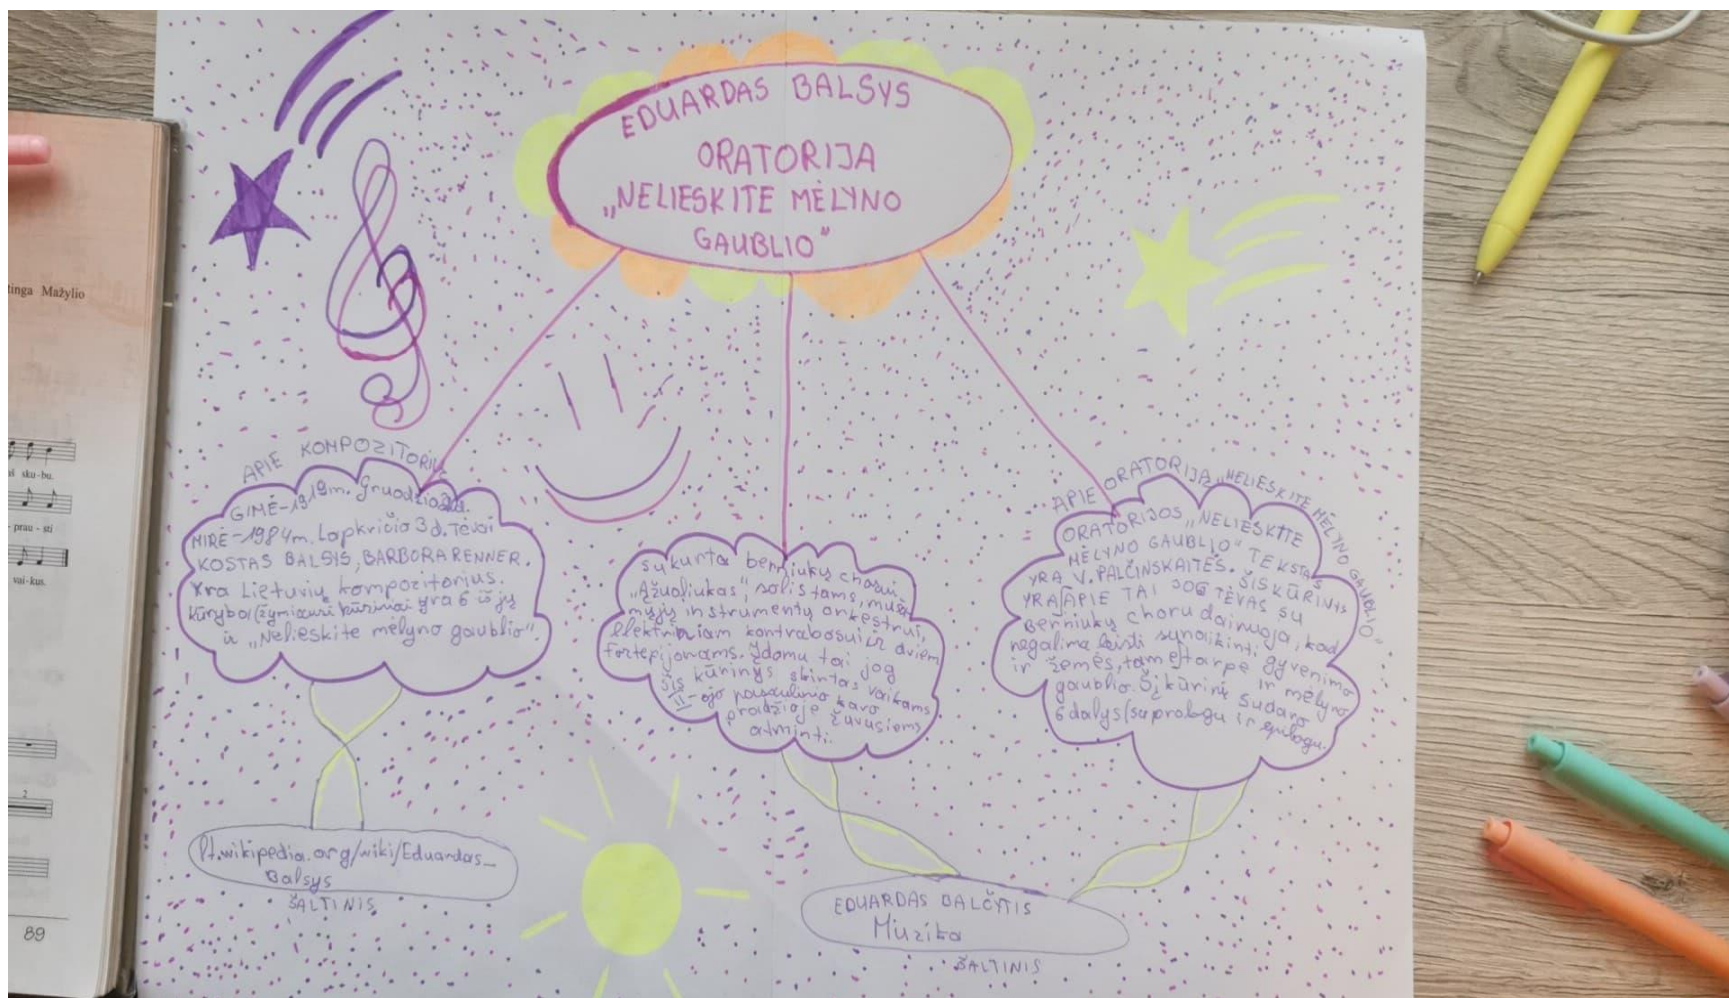 EDUARDAS BALSYS
ORATORIJA
„NELIESKITE MĖLYNO
GAUBLIO"
tinga Mažylio
sku - bu.
- prau - sti
vai - kus.
2
89
APIE KOMPOZITORIŲ
GIMĖ - 1919 m. Gruodžio
MIRĖ - 1984 m. Lapkričio 3 d. Tėvai
KOSTAS BALSIS, BARBORA RENNER.
Yra Lietuvių kompozitorius.
Kūryba/žymiausi kūriniai yra 6 iš jų
ir „Nelieskite mėlyno gaublio".
lt.wikipedia.org/wiki/Eduardas_
Balsys
ŠALTINIS
Sukurta berniukų chorui
„Ąžuoliukas", solistams, muša-
mųjų instrumentų orkestrui,
elektriniam kontrabosui ir dviem
fortepijonams. Įdomu tai jog
šis kūrinys skirtas vaikams
II-ojo pasaulinio karo
pradžioje žuvusiems
atminti.
APIE ORATORIJĄ „NELIESKITE MĖLYNO GAUBLIO"
ORATORIJOS „NELIESKITE
MĖLYNO GAUBLIO" TEKSTAS
YRA V. PALČINSKAITĖS. ŠIS KŪRINYS
YRA APIE TAI JOG TĖVAS SU
Berniukų choru dainuoja, kad
negalima leisti sunaikinti gyvenimo
ir žemės, tame tarpe ir mėlyno
gaublio. Šį kūrinį sudaro
6 dalys (su prologu ir epilogu.
EDUARDAS BALČYTIS
Muzika
ŠALTINIS